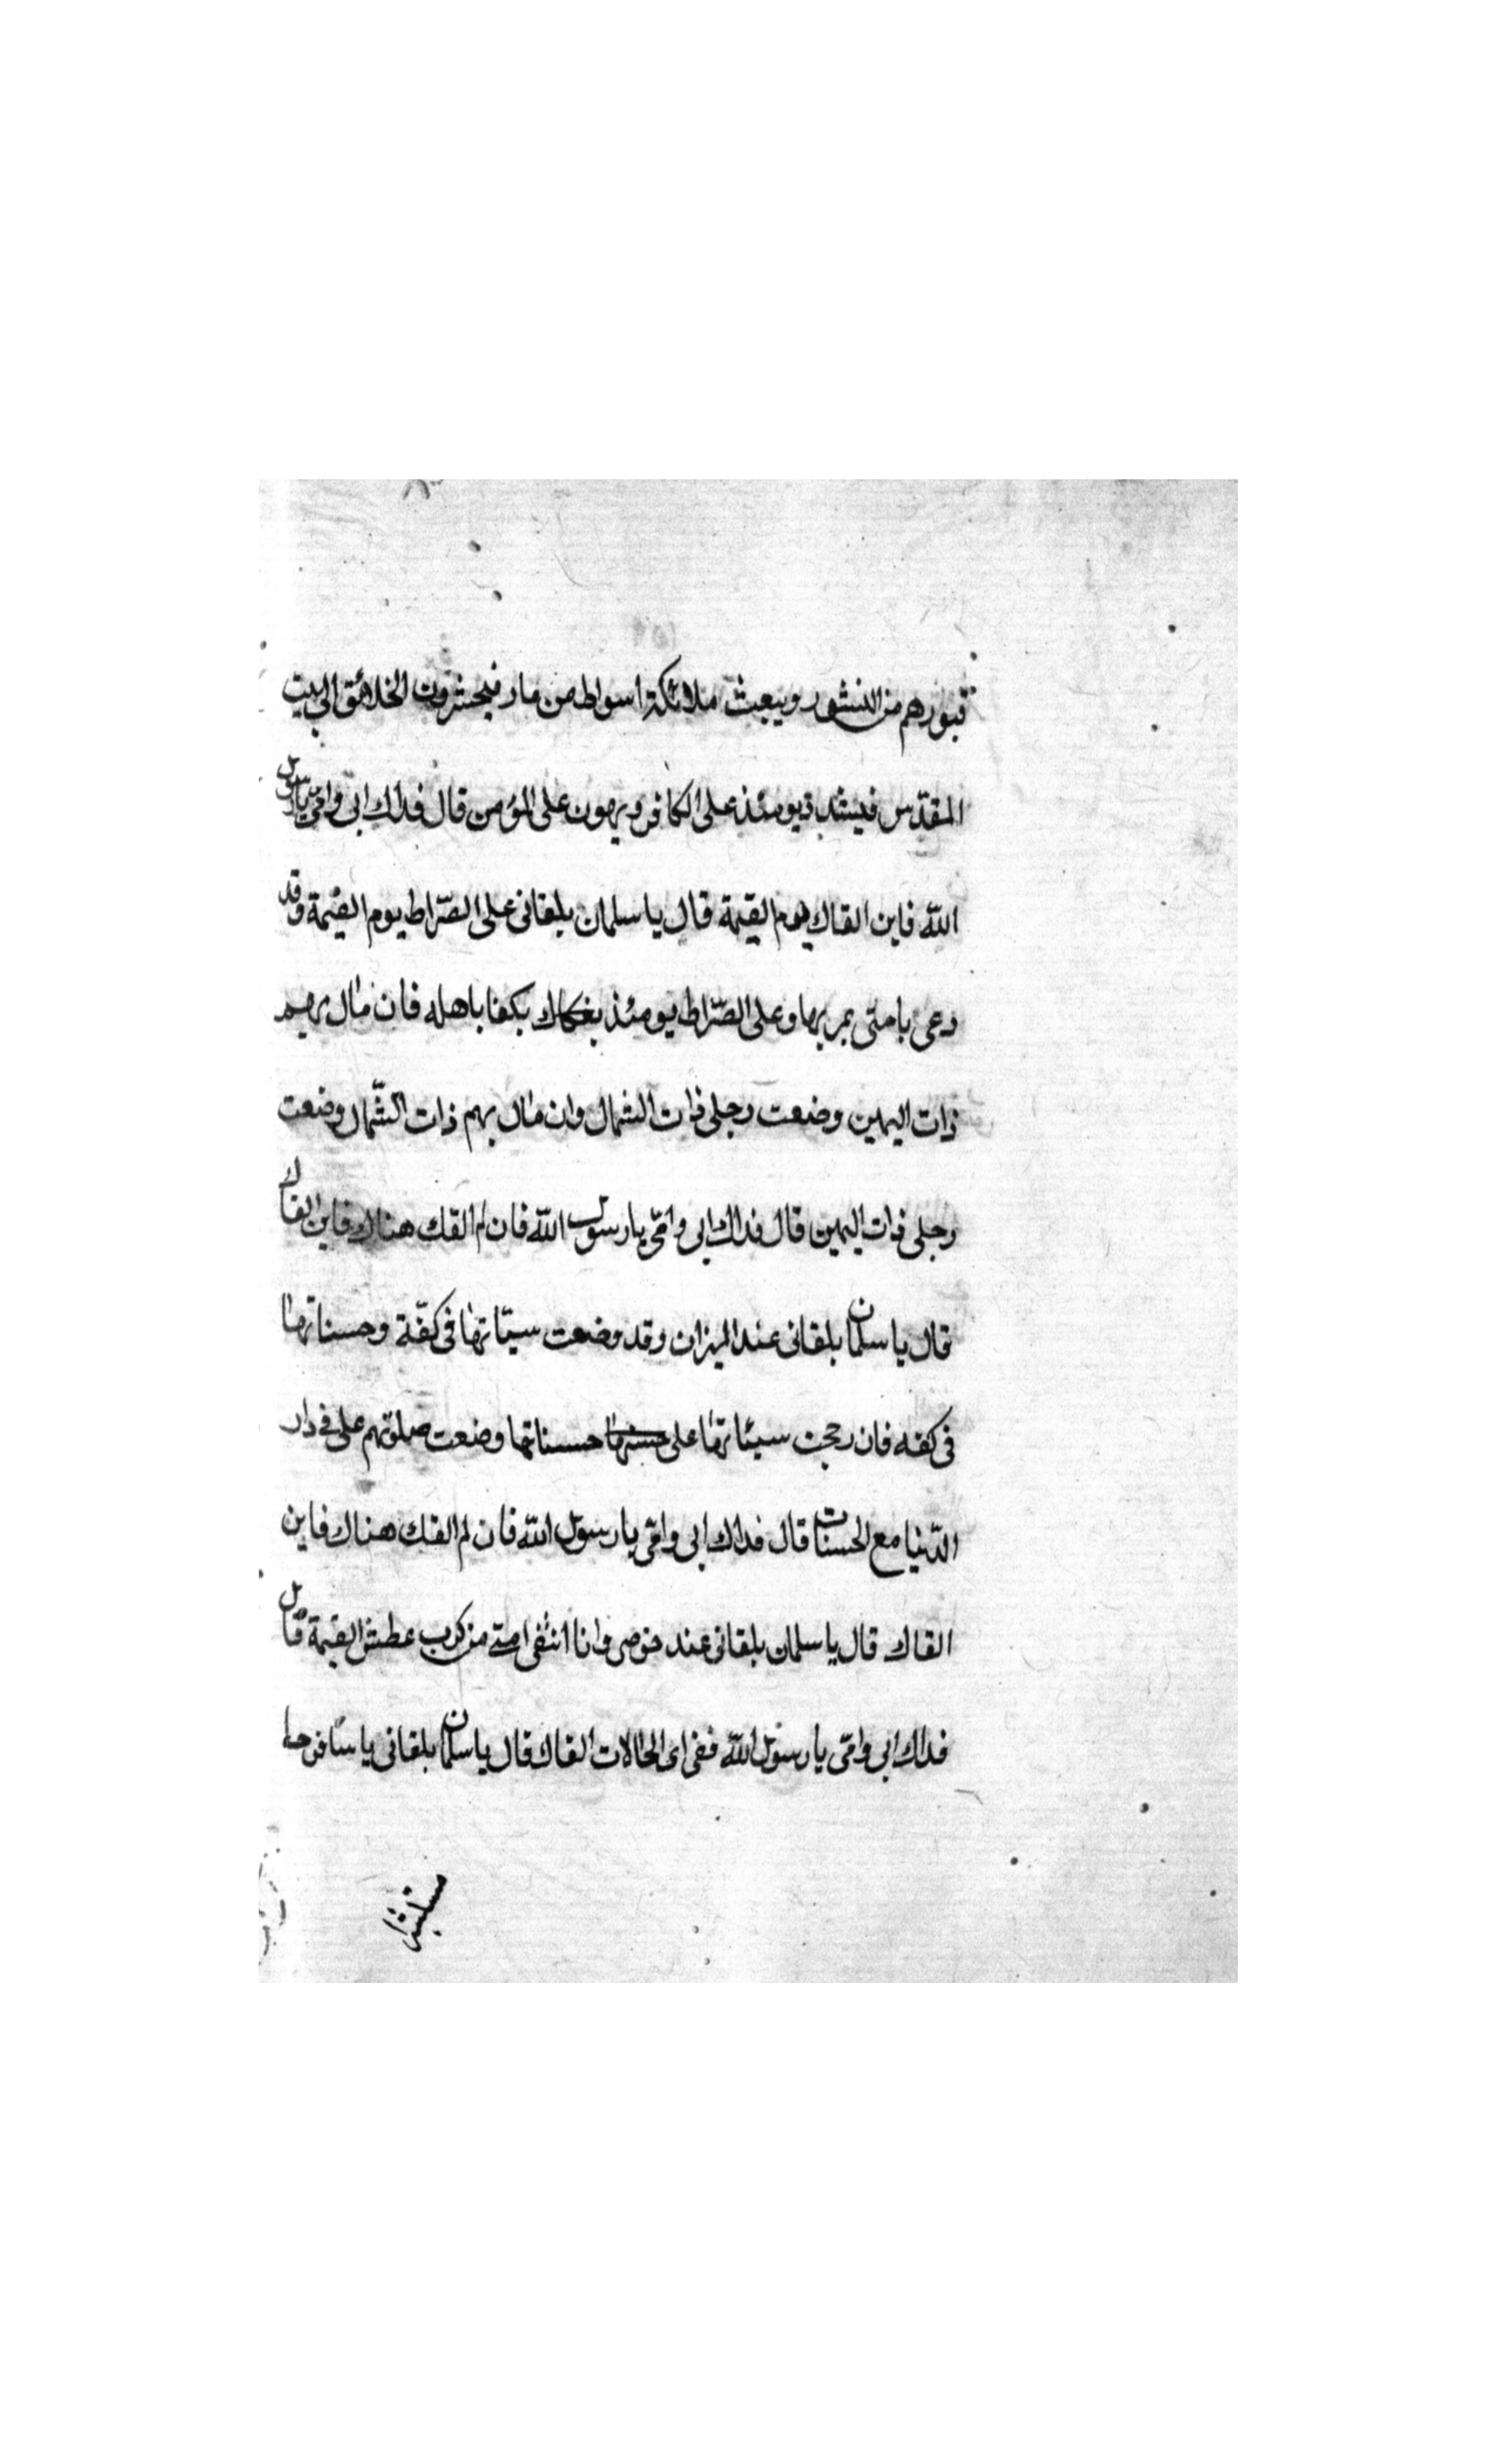 قبورهم من النشور ويبعث ملائكة اسواط من نار فيحشرون الخلائق الى بيت
المقدس فيشتد يومئذ على الكافر ويهون على المؤمن قال فداك ابى وامّى يا رسول
الله فاين القاك يوم القيمة قال يا سلمان يلقانى على الصّراط يوم القيمة وقد
دعى بامتى يمر بها وعلى الصّراط يومئذ باهله فان مال بهم
ذات اليمين وضعت رجلى ذات الشمال وان مال بهم ذات الشّمال وضعت
رجلى ذات اليمين قال فداك ابى وامّى يا رسول الله فان لم القك هناك فاين القاك
قال يا سلمان يلقانى عند الميزان وقد وضعت سيّاتها فى كفّة وحسناتها
فى كفه فان رجحت سيئاتها على حسناتها وضعت صلوتهم على فى دار
الدّنيا مع الحسنات قال فداك ابى وامّى يا رسول الله فان لم القك هناك فاين
القاك قال يا سلمان يلقانى عند حوضى وانا امتى من كرب عطش القيمة قال
فداك ابى وامّى يا رسول الله ففى اى الحالات القاك قال يا سلمان يلقانى يا